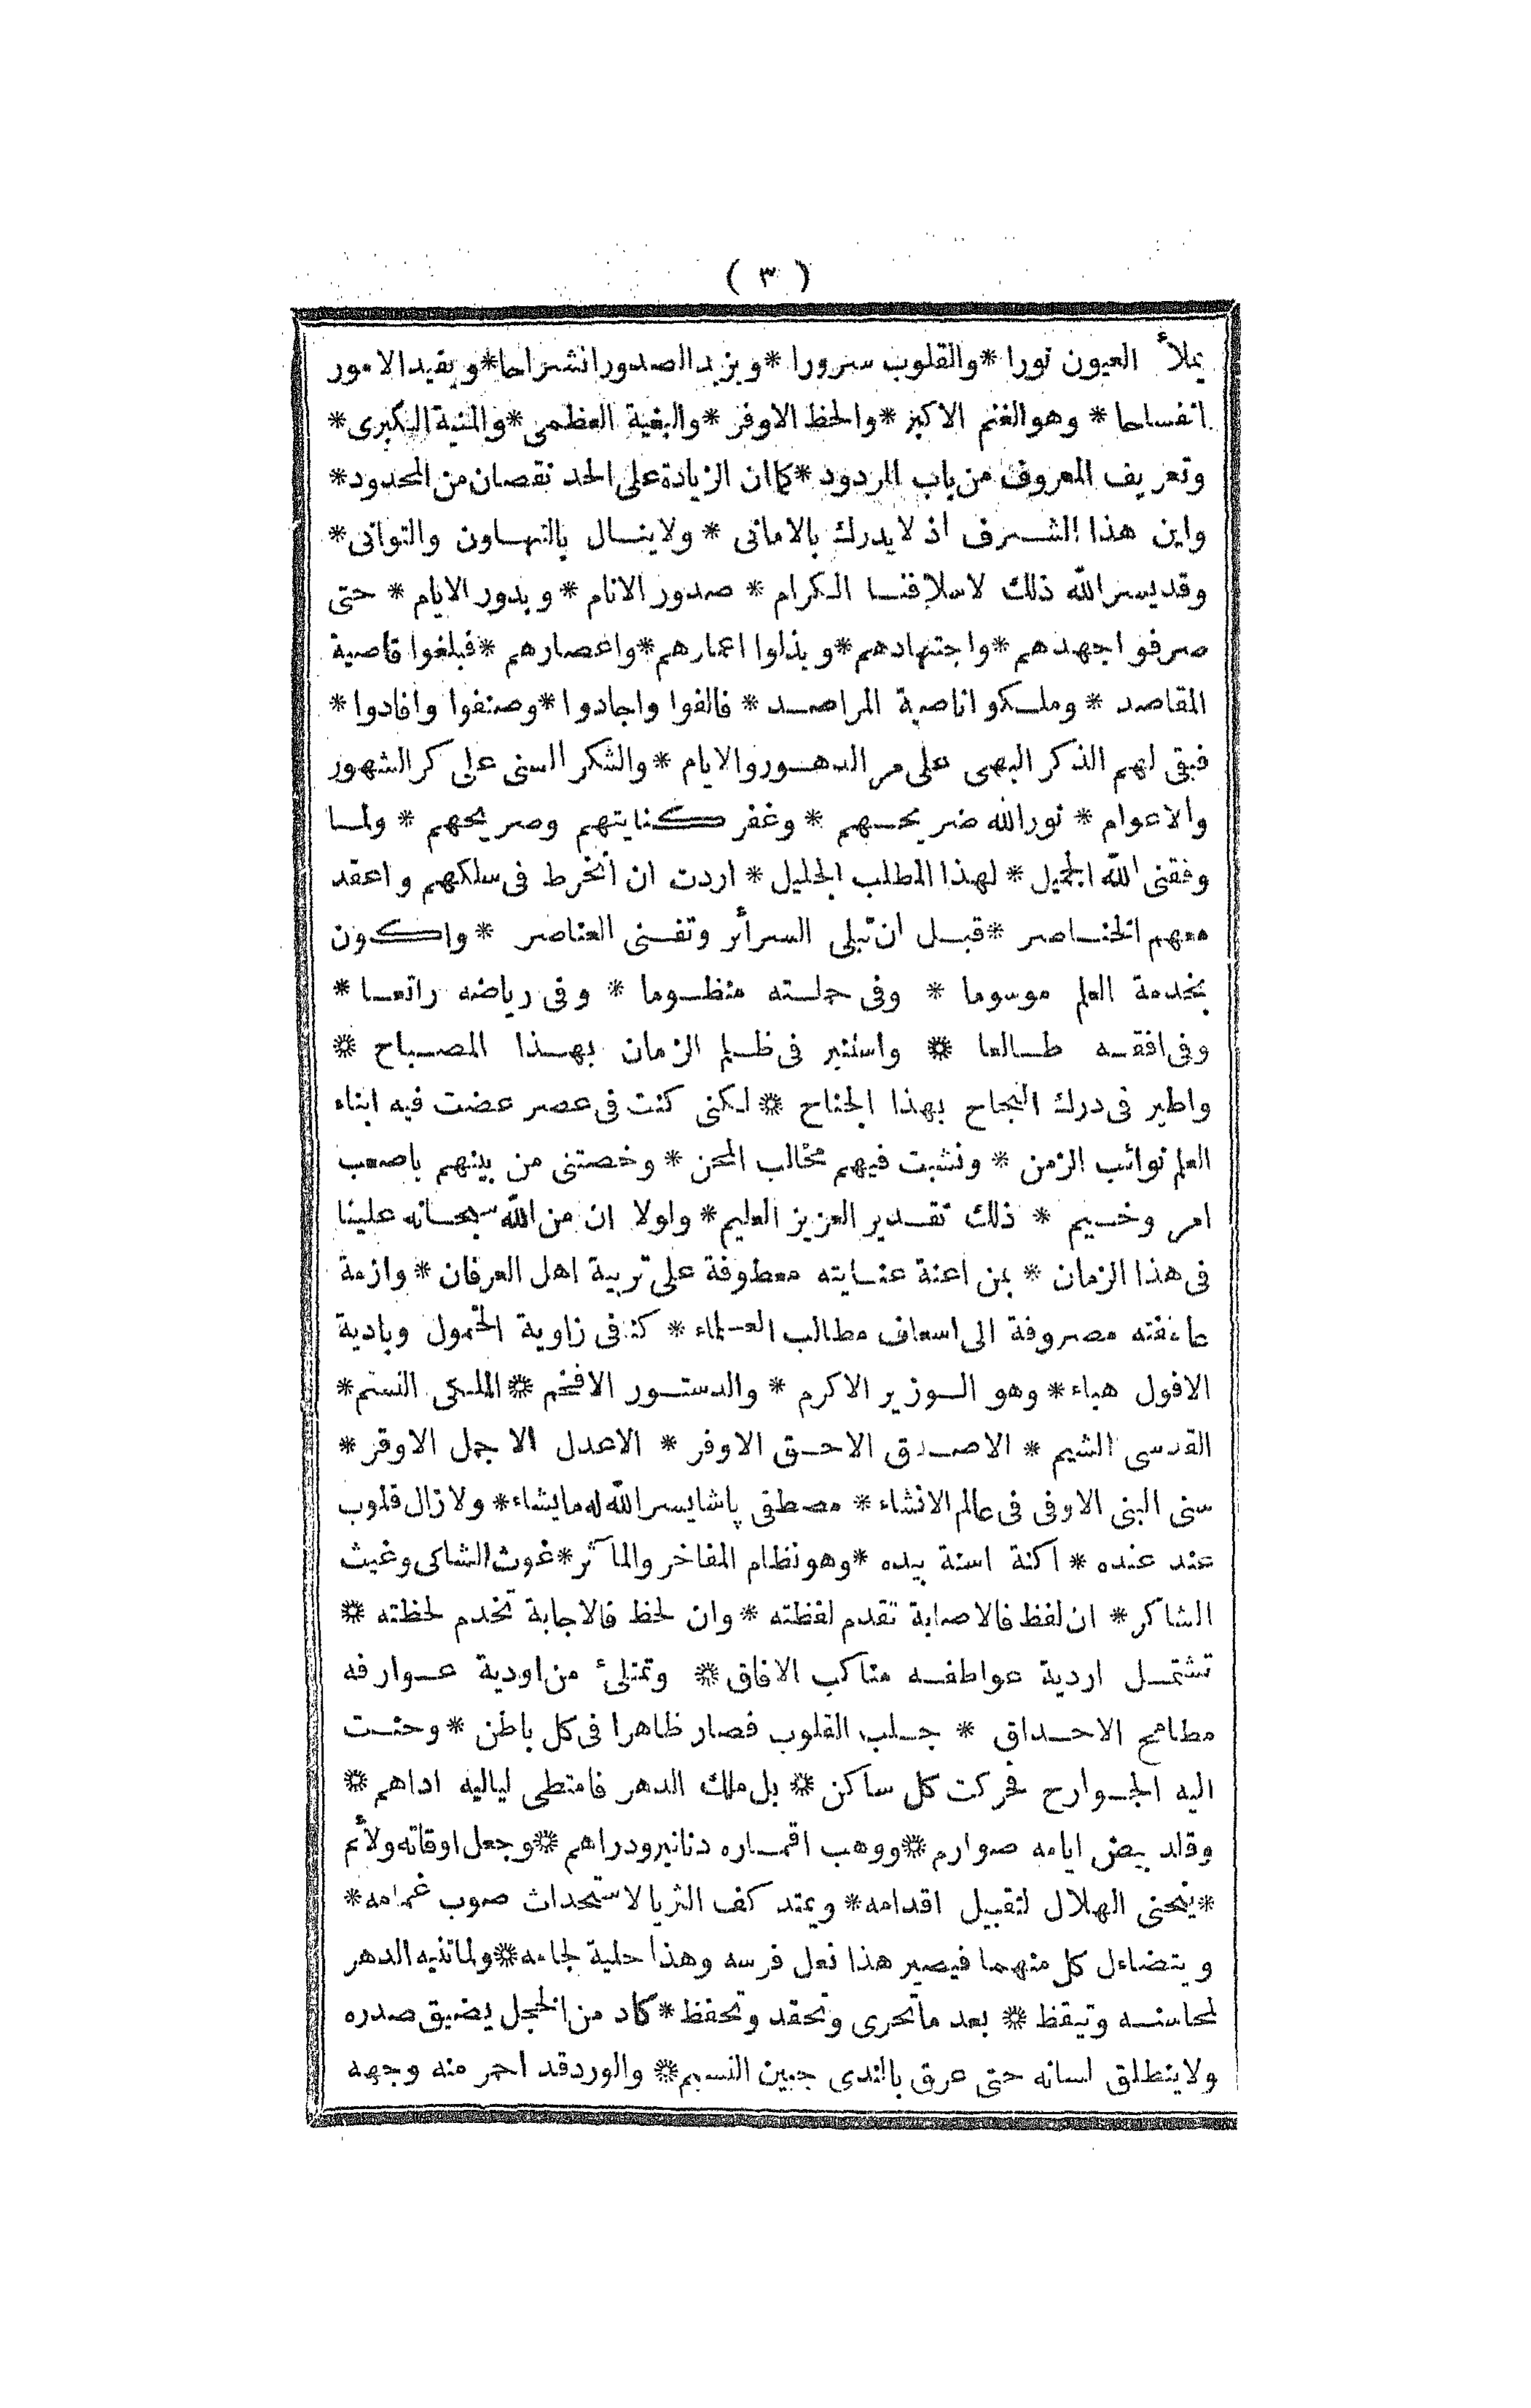 ( ٣ )
يملأ العيون نورا * والقلوب سرورا * ويزيد الصدور انشراحا * ويفيد الامور
انفساحا * وهو الغنم الاكبر * والحظ الاوفر * والبغية العظمى * والمنية الكبرى *
وتعريف المعروف من باب المردود * كما ان الزيادة على الحد نقصان من المحدود *
واين هذا الشرف اذ لا يدرك بالامانى * ولا ينال بالتهاون والتوانى *
وقد يسر الله ذلك لاسلافنا الكرام * صدور الانام * وبدور الايام * حتى
صرفوا جهدهم * واجتهادهم * وبذلوا اعمارهم * واعصارهم * فبلغوا قاصية
المقاصد * وملكوا ناصية المراصد * فالفوا واجادوا * وصنفوا وافادوا *
فبقى لهم الذكر البهى على مر الدهور والايام * والشكر السنى على كر الشهور
والاعوام * نور الله ضريحهم * وغفر كنايتهم وصريحهم * ولما
وفقنى الله الجميل * لهذا المطلب الجليل * اردت ان أنخرط فى سلكهم واعقد
معهم الخناصر * قبل ان تبلى السرائر وتفنى العناصر * واكون
بخدمة العلم موسوما * وفى حملته منظوما * وفى رياضه راتعا *
وفى افقه طالعا * واستنير فى ظلم الزمان بهذا المصباح *
واطير فى درك النجاح بهذا الجناح * لكنى كنت فى عصر عضت فيه ابناء
العلم نوائب الزمن * ونشبت فيهم مخالب المحن * وخصتنى من بينهم باصعب
امر وخيم * ذلك تقدير العزيز العليم * ولولا ان من الله سبحانه علينا
فى هذا الزمان * بمن اعنة عنايته معطوفة على تربية اهل العرفان * وازمة
عاطفته مصروفة الى اسعاف مطالب العلماء * كنا فى زاوية الخمول وبادية
الافول هباء * وهو الوزير الاكرم * والدستور الافخم * الملكى النسم *
القدسى الشيم * الاصدق الاحق الاوفر * الاعدل الاجمل الاوقر *
سنى البنى الاوفى فى عالم الانشاء * مصطفى پاشا يسر الله له ما يشاء * ولا زال قلوب
عند عنده * اكنة اسنة بيده * وهو نظام المفاخر والمآثر * غوث الشاكى وغيث
الشاكر * ان لفظ فالاصابة تقدم لفظته * وان لحظ فالاجابة تخدم لحظته *
تشتمل اردية عواطفه مناكب الافاق * وتمتلئ من اودية عوارفه
مطامح الاحداق * جلب القلوب فصار ظاهرا فى كل باطن * وحنت
اليه الجوارح فحركت كل ساكن * بل ملك الدهر فامتطى لياليه اداهم *
وقلد بيض ايامه صوارم * ووهب اقماره دنانير ودراهم * وجعل اوقاته ولائم
* ينحنى الهلال لتقبيل اقدامه * ويمتد كف الثريا لاستحداث صوب غمامه *
ويتضاءل كل منهما فيصير هذا نعل فرسه وهذا حلية لجامه * ولما تنبه الدهر
لمحاسنه وتيقظ * بعد ما تحرى وتحقد وتحفظ * كاد من الخجل يضيق صدره
ولا ينطلق لسانه حتى عرق بالندى جبين النسيم * والورد قد احمر منه وجهه